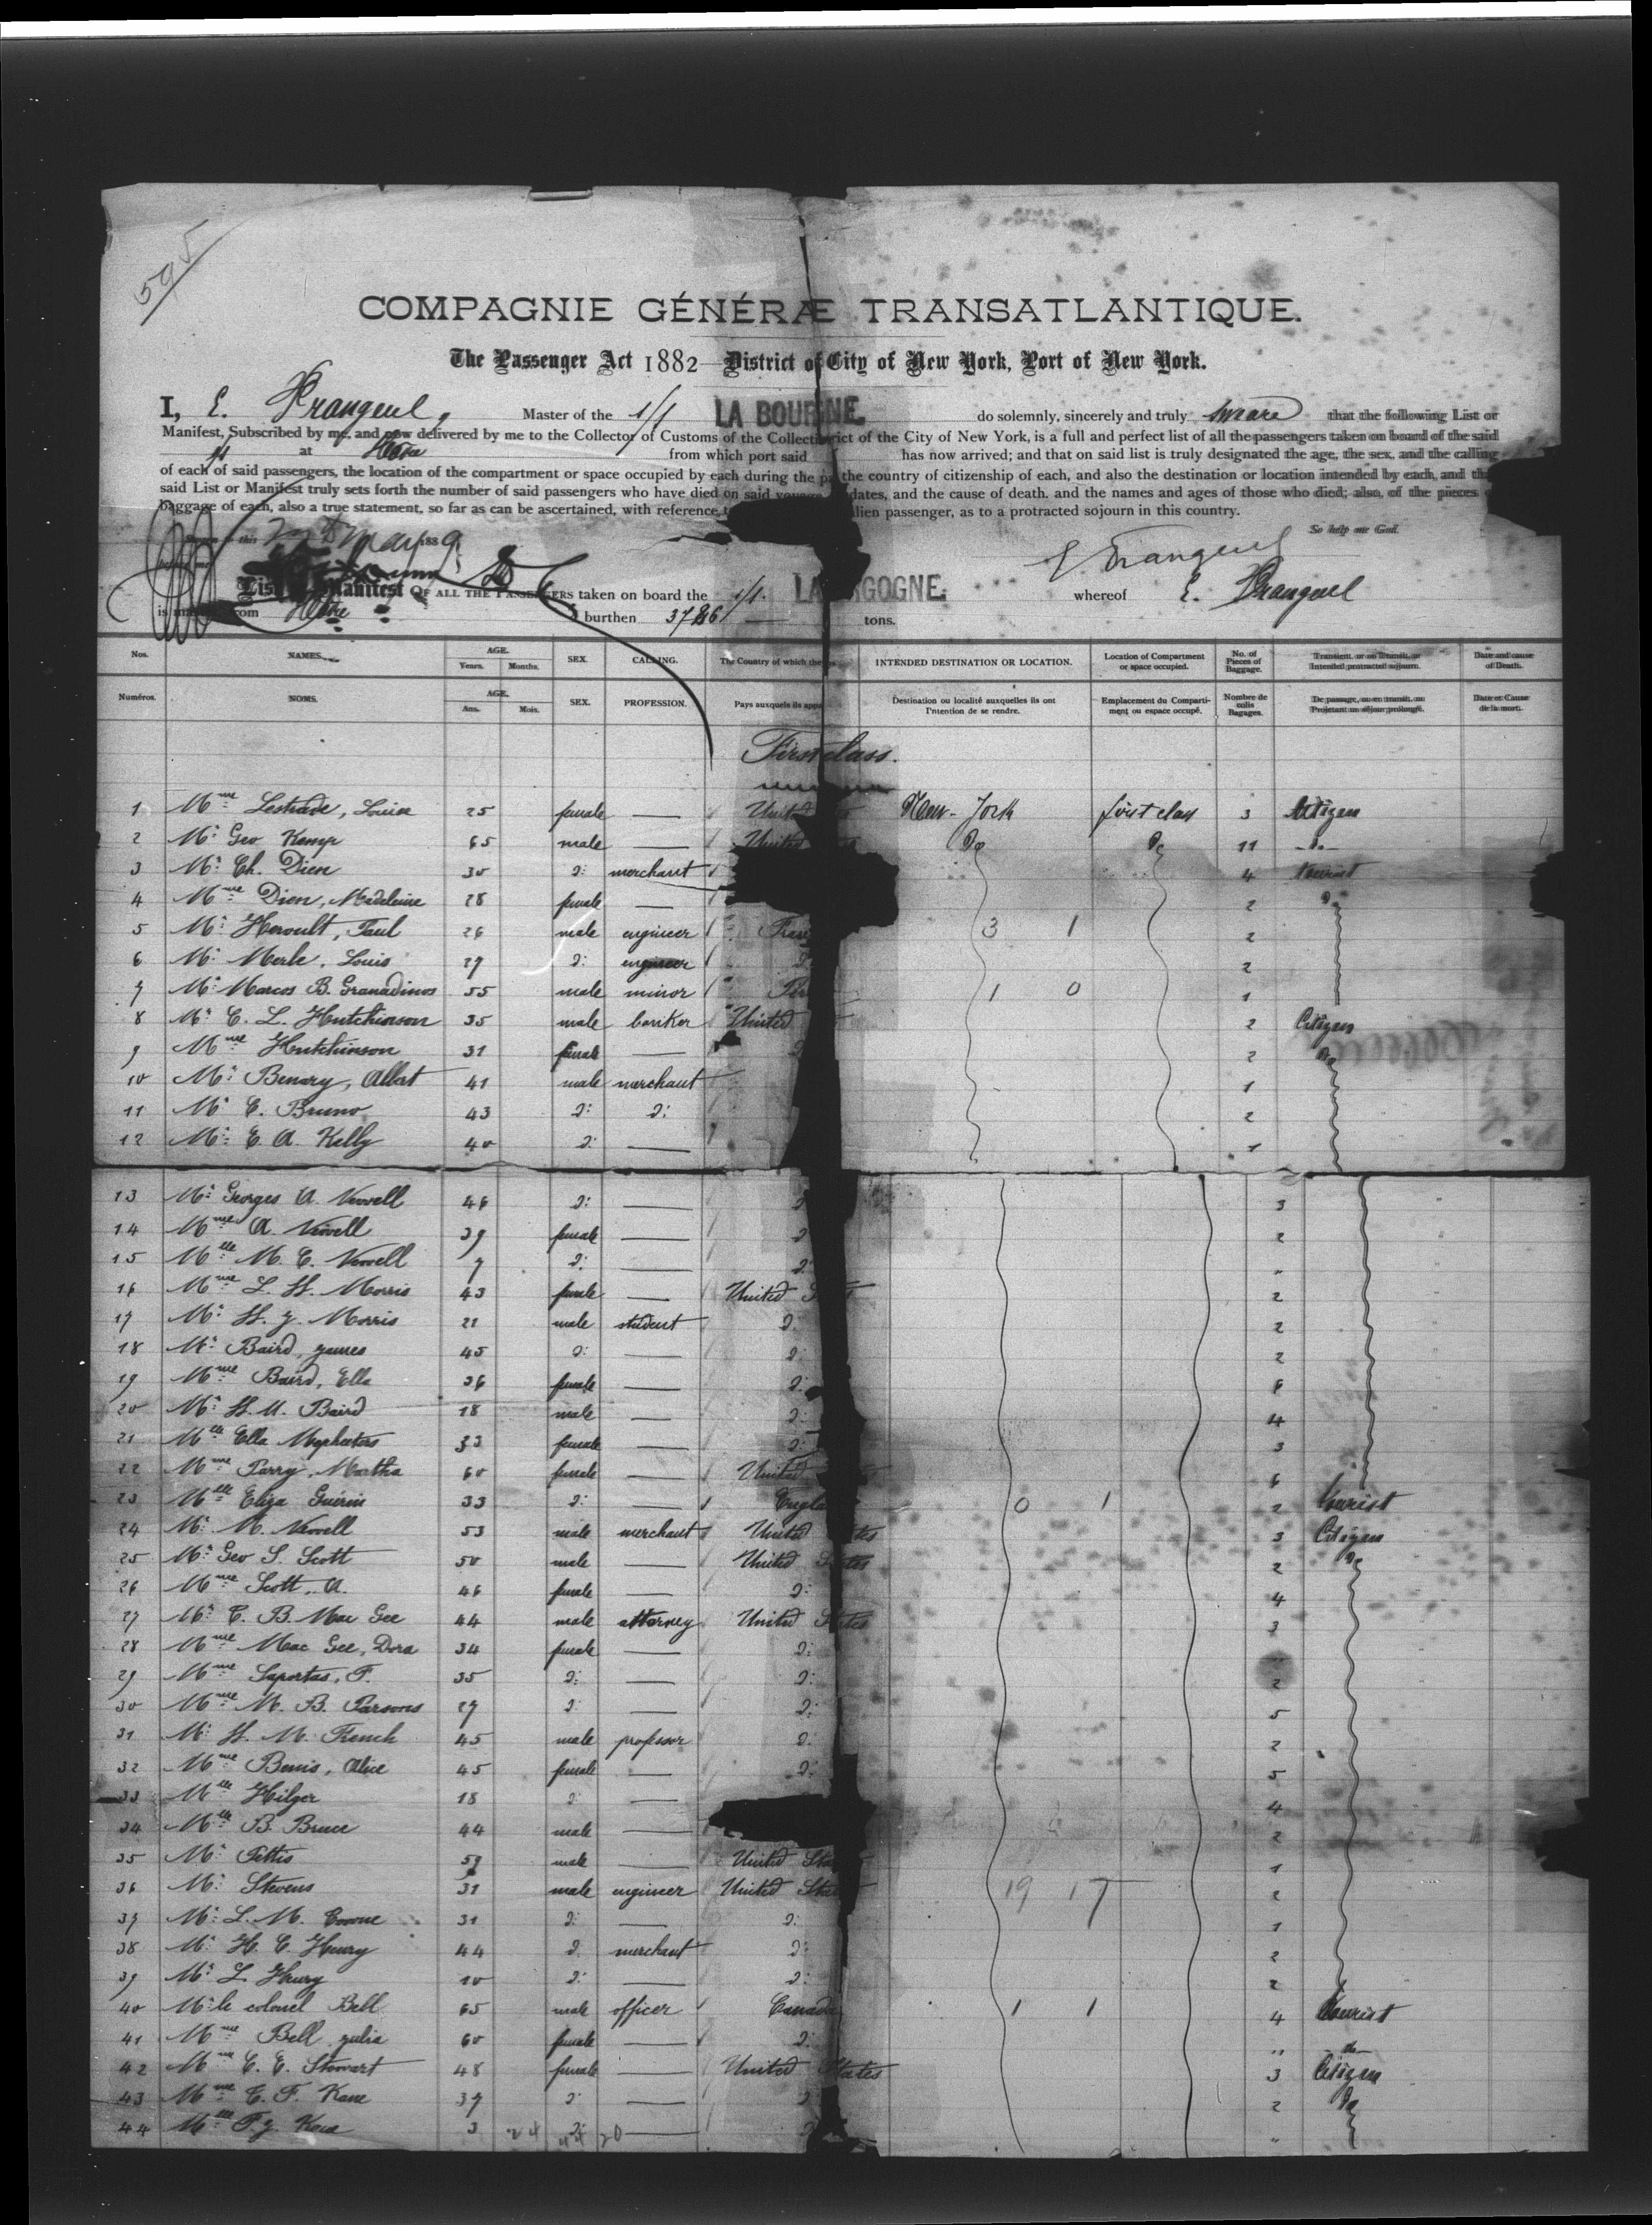 595
COMPAGNIE GÉNÉRALE TRANSATLANTIQUE.
The Passenger Act 1882 District of City of New York, Port of New York.
I, E. Frangeul, Master of the S/S LA BOURGOGNE. do solemnly, sincerely and truly swear that the following List or
Manifest, Subscribed by me, and now delivered by me to the Collector of Customs of the Collection District of the City of New York, is a full and perfect list of all the passengers taken on board of the said
at Havre from which port said has now arrived; and that on said list is truly designated the age, the sex, and the calling
of each of said passengers, the location of the compartment or space occupied by each during the the country of citizenship of each, and also the destination or location intended by each, and that
said List or Manifest truly sets forth the number of said passengers who have died on said voyage dates, and the cause of death, and the names and ages of those who died; also, of the pieces
baggage of each, also a true statement, so far as can be ascertained, with reference alien passenger, as to a protracted sojourn in this country.
So help me God.
this May 1889 E Frangeul
List or Manifest OF ALL THE PASSENGERS taken on board the S/S. LA BOURGOGNE. whereof E. Frangeul
is from Havre burthen tons.
Nos. NAMES. AGE. Years. Months. SEX. CALLING. The Country of which they INTENDED DESTINATION OR LOCATION. Location of Compartment or space occupied. No. of Pieces of Baggage. Transient, or in transit, or Intended protracted sojourn. Date and cause of Death.
Numéros. NOMS. AGE. Ans. Mois. SEX. PROFESSION. Pays auxquels ils Destination ou localité auxquelles ils ont l'intention de se rendre. Emplacement du Compartiment ou espace occupé. Nombre de colis Bagages. De passage, ou en transit, ou Projetant un séjour prolongé. Date et Cause de la mort.
First class.
1 Mme Lestrade, Louise 25 female — United New-York first class 3 Citizen
2 Mr Geo Kemp 65 male — United do do 11 -d°-
3 Mr Ch. Dien 30 d: merchant 4 tourist
4 Mme Dien, Madeleine 28 female — 2 do
5 Mr Heroult, Paul 26 male engineer 3 1 2
6 Mr Merle, Louis 27 d: engineer d: 2
7 Mr Marcos B. Granadinos 55 male minor 1 0 1
8 Mr C. L. Hutchinson 35 male banker United 2 Citizen
9 Mme Hutchinson 31 female — 2 do
10 Mr Benary, Albert 41 male merchant 1
11 Mr E. Bruno 43 d: d: 2
12 Mr E. A. Kelly 40 d: — 1
13 Mr Georges A. Newell 46 d: — d 3
14 Mme A. Newell 39 female — d 2
15 Mlle M. E. Newell 7 d: — d: "
16 Mme L. H. Morris 43 female — United 2
17 Mr H. J. Morris 21 male student d: 2
18 Mr Baird, James 45 d: — d: 2
19 Mme Baird, Ella 36 female — d: 6
20 Mr H. M. Baird 18 male — d: 4
21 Mlle Ella 33 female — d: 3
22 Mme Parry, Martha 60 female — United 6
23 Mlle Eliza Guérin 33 d: — Engla 0 1 2 tourist
24 Mr M. Newell 53 male merchant United States 3 Citizen
25 Mr Geo S. Scott 50 male — United States 2 do
26 Mme Scott, A. 46 female — d: 4
27 Mr C. B. Mac Gee 44 male attorney United States 3
28 Mme Mac Gee, Dora 34 female — d:
29 Mme Saportas, F. 35 d: — d: 2
30 Mme M. B. Parsons 27 d: — d: 5
31 Mr H. M. French 45 male professor d: 2
32 Mme Bemis, Alice 45 female — d: 5
33 Mlle Hilger 18 d: — 4
34 Mlle B. Bruce 44 male — 2
35 Mr Fettis male — United Sta 1
36 Mr Stevens 31 male engineer United Sta 19 17 2
37 Mr L. M. 31 d: — d: 1
38 Mr H. C. Henry 44 d. merchant d: 2
39 Mr L. Henry 10 d: — d: 2
40 Mr le colonel Bell 65 male officer Canada 1 1 4 tourist
41 Mme Bell, Julia 60 female — d: " do
42 Mme C. E. Stewart 48 female — United States 3 Citizen
43 Mme E. F. Kane 39 d: — d 2 do
44 Mlle F. J. Kane 3 24 d: 20 — d "